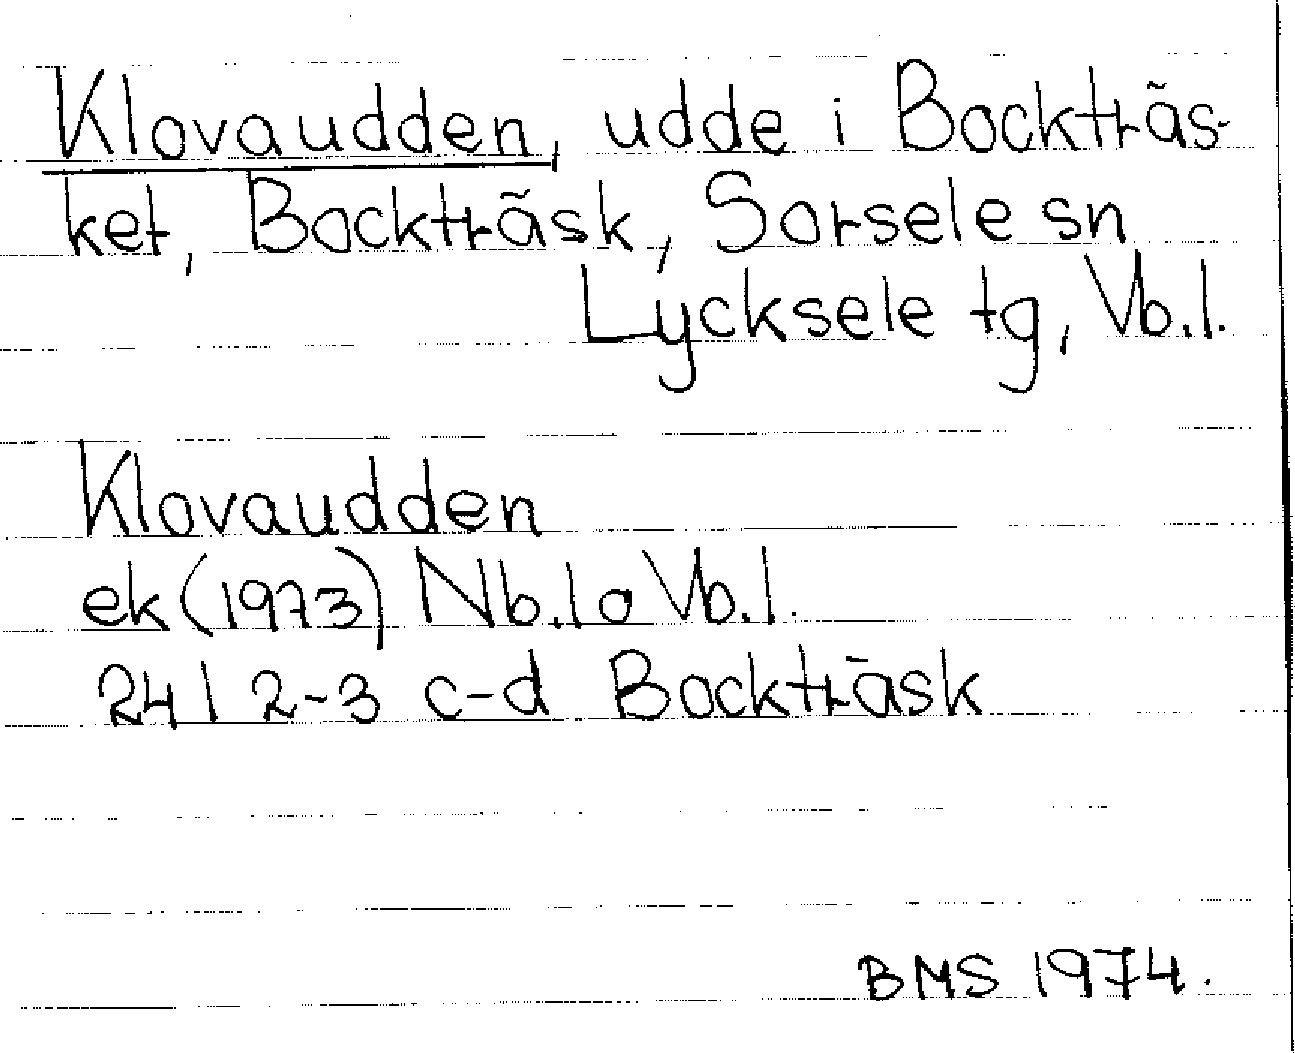 Klovaudden, udde i Bockträs-
ket, Bockträsk, Sorsele sn
Lycksele tg, Vb.l.
Klovaudden
ek (1973) Nb.l o Vb.l.
24 I 2-3 c-d Bockträsk
BMS 1974.